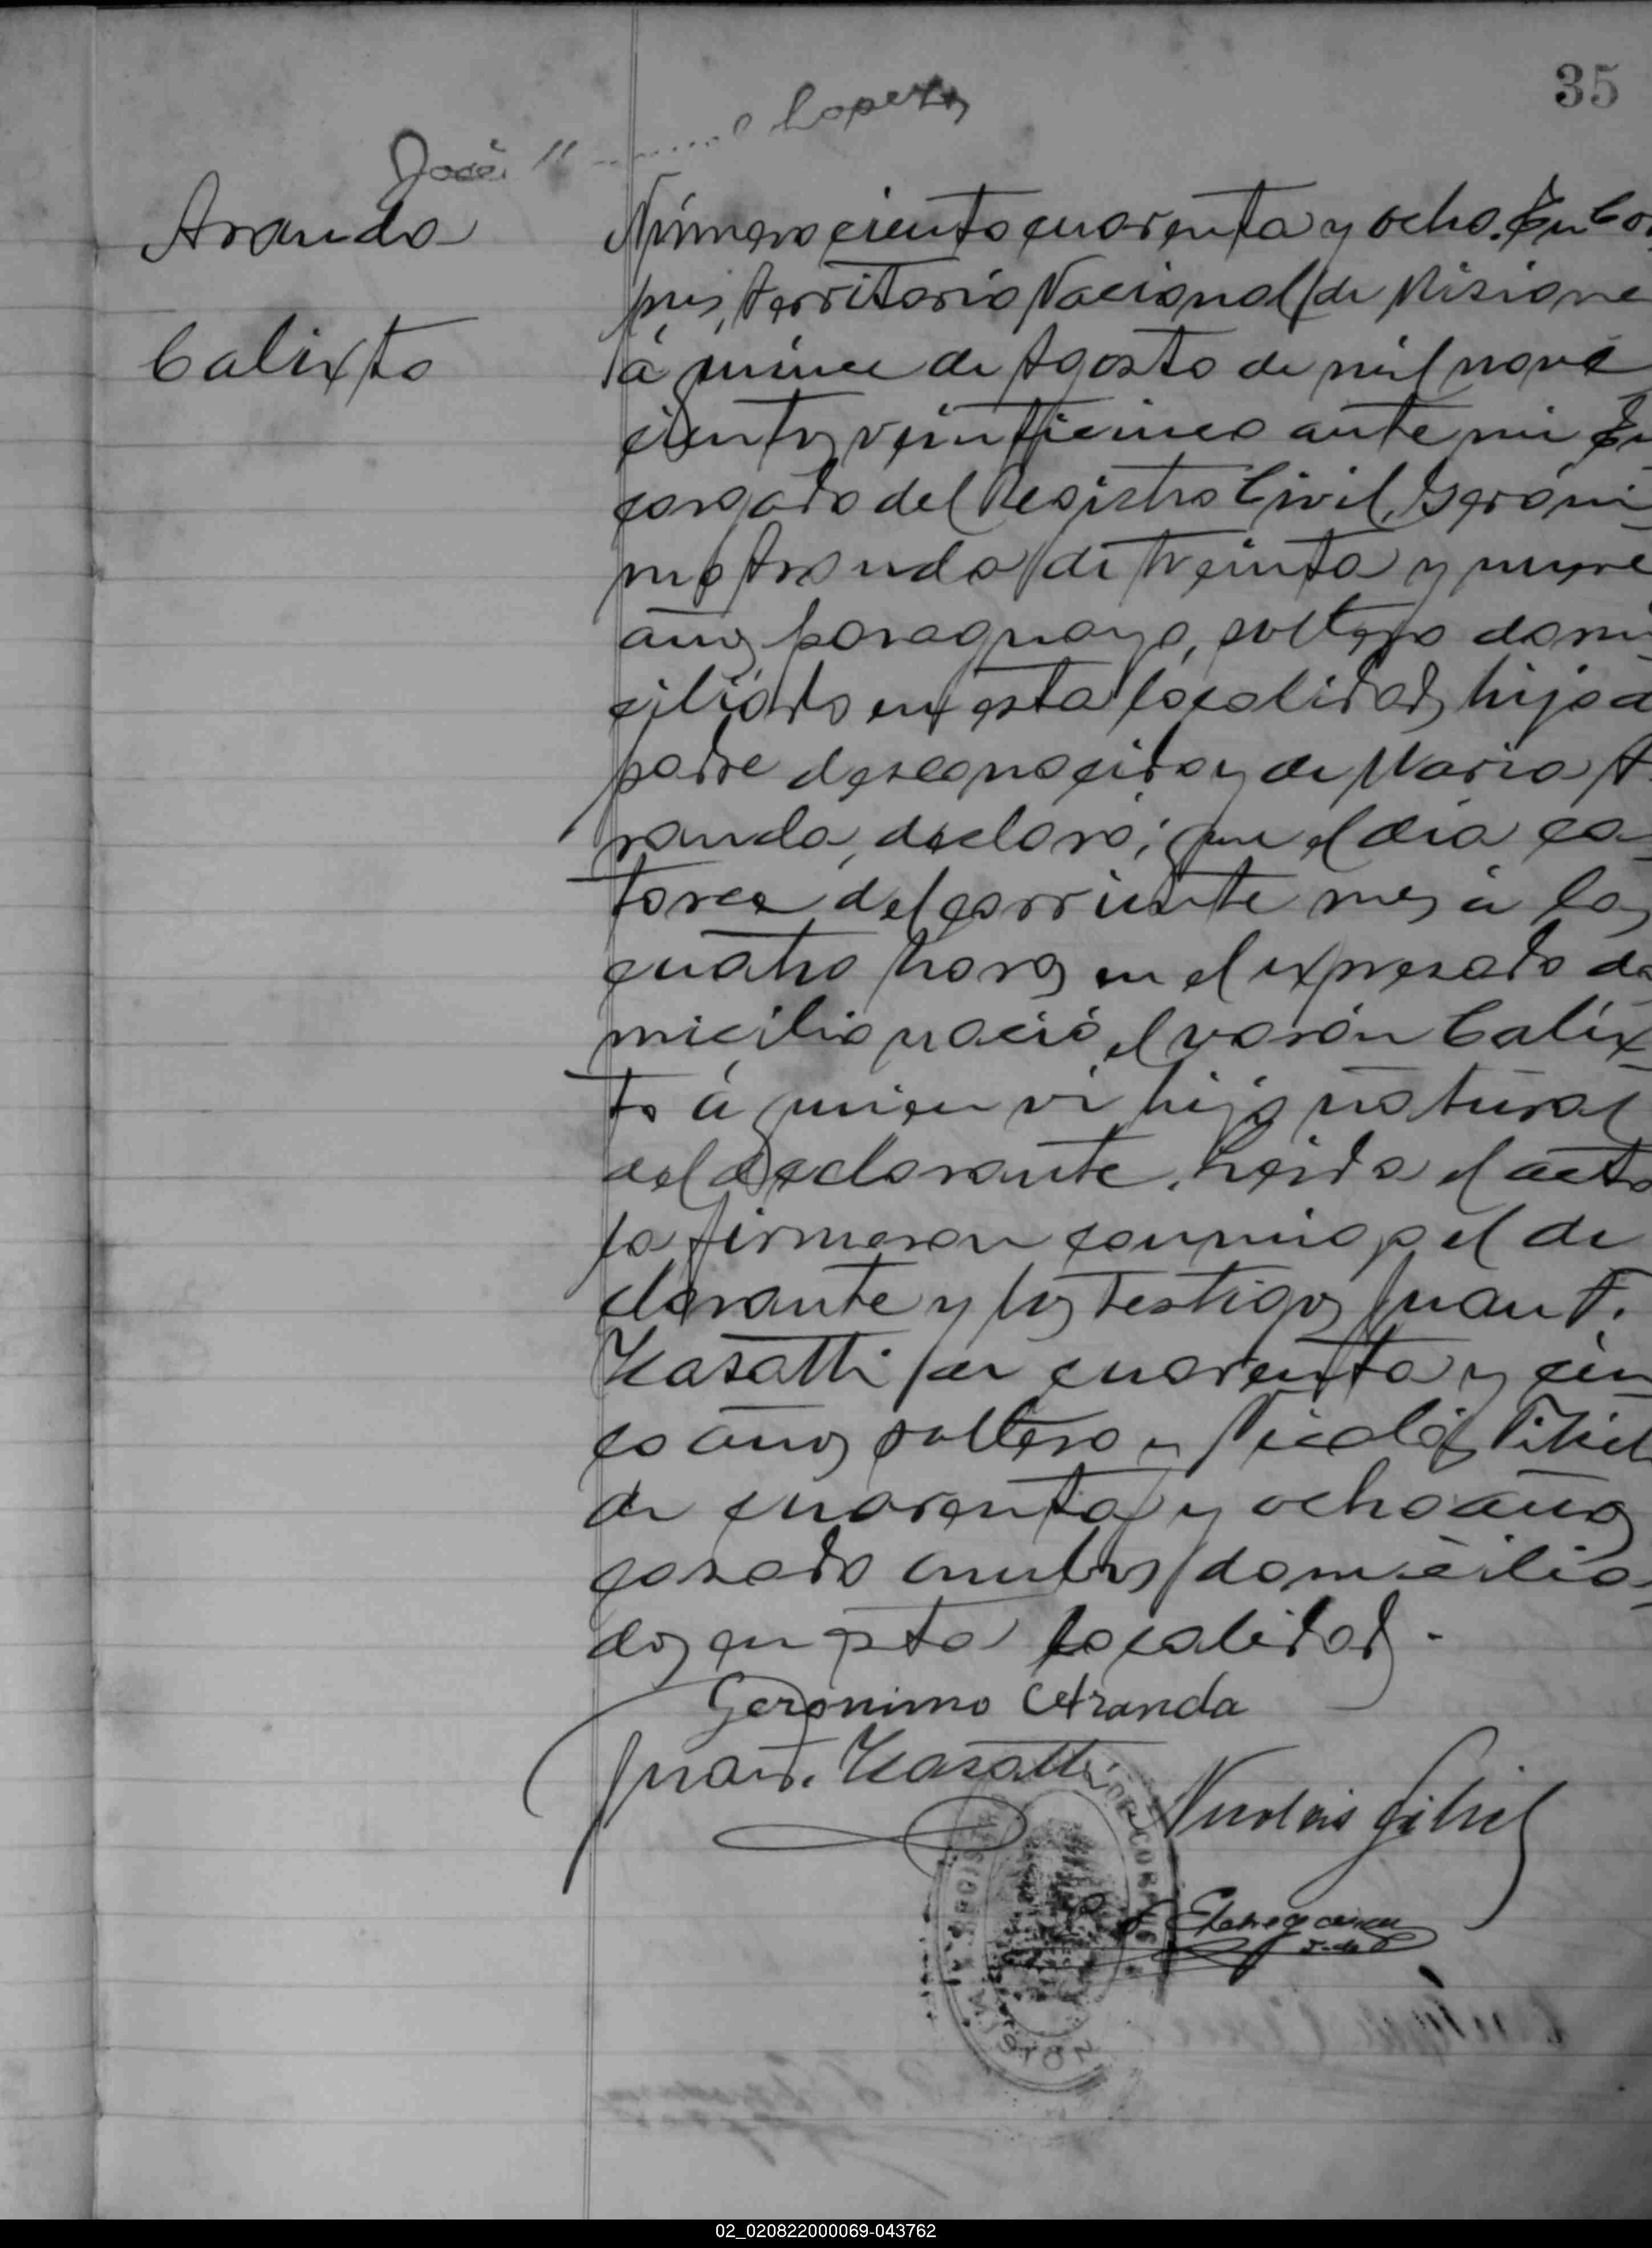 35
José Lopez
Aranda
Calixto
Número ciento cuarenta y ocho. En Cor
pus, Territorio Nacional de Misione
á quince de Agosto de mil nove
cientos veinticinco ante mi En
cargado del Registro Civil, Geróni
mo Aranda de treinta y nueve
años paraguayo, soltero domi
ciliado en esta localidad, hijo d
padre desconocido y de Maria A
randa, declaró; que el dia ca
torce del corriente mes á las
cuatro horas en el expresado do
micilio nació el varón Calix
to á quien vi hijo natural
del declarante. Leida el acta
la firmaron conmigo el de
clarante y los testigos Juan F.
Kasatti de cuarenta y cin
co años soltero y Nicolás
de cuarenta y ocho años
casado ambos domicilia
dos en esta localidad.-
Geronimo Aranda
Juan F. Kasatti
Nicolás
02_020822000069-043762